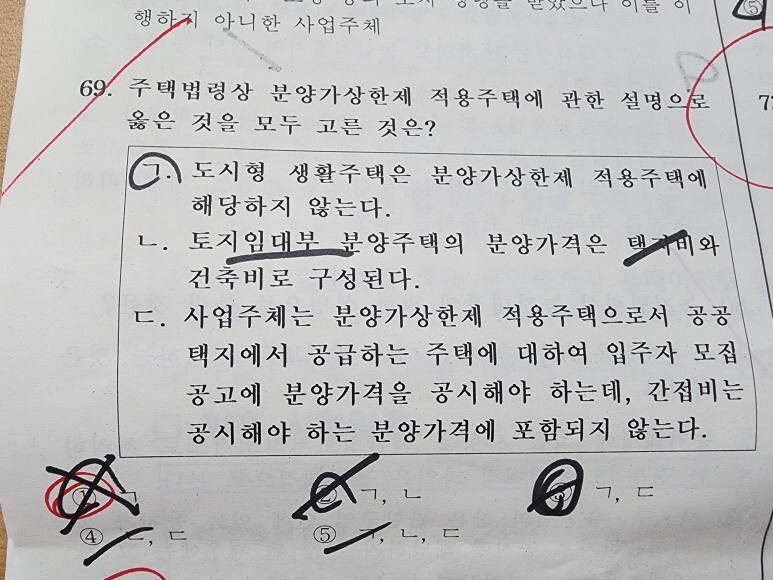 행하지 아니한 사업주체
69. 주택법령상 분양가상한제 적용주택에 관한 설명으로
옳은 것을 모두 고른 것은?
ㄱ. 도시형 생활주택은 분양가상한제 적용주택에
해당하지 않는다.
ㄴ. 토지임대부 분양주택의 분양가격은 택지비와
건축비로 구성된다.
ㄷ. 사업주체는 분양가상한제 적용주택으로서 공공
택지에서 공급하는 주택에 대하여 입주자 모집
공고에 분양가격을 공시해야 하는데, 간접비는
공시해야 하는 분양가격에 포함되지 않는다.
① ㄱ ② ㄱ, ㄴ ③ ㄱ, ㄷ
④ ㄴ, ㄷ ⑤ ㄱ, ㄴ, ㄷ